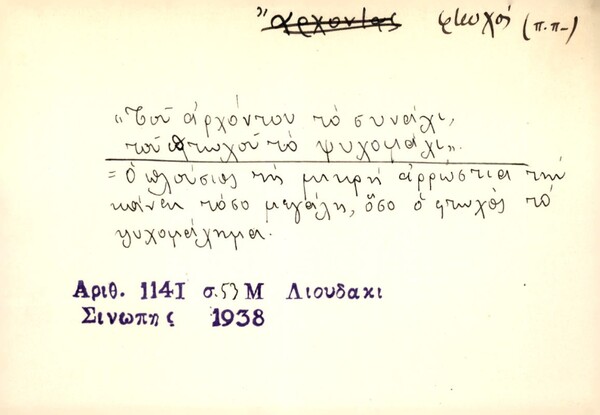 ἄρχοντας φτωχός (π.π-)
«Τοῦ ἀρχόντου τὸ συνάχι,
τοῦ φτωχοῦ τὸ ψυχομάχι».
= ὁ πλούσιος τὴ μικρὴ ἀρρώστια τὴν
κάνει τόσο μεγάλη, ὅσο ὁ φτωχὸς τὸ
ψυχομάχημα.
Αριθ. 1141 σ.53 Μ Λιουδακι
Σινωπης 1938